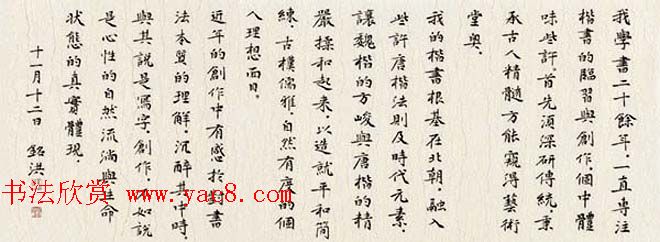 我學書二十餘年，一直專注
楷書的臨習與創作，個中體
味些許。首先須深研傳統，秉
承古人精髓方能窺得藝術
堂奧。
我的楷書根基在北朝，融入
些許唐楷法則及時代元素，
讓魏楷的方峻與唐楷的精
嚴揉和起來，以造就平和簡
練、古樸儒雅、自然有度的個
人理想面目。
近年的創作中有感於對書
法本質的理解，沉醉其中時，
與其說是寫字、創作，不如說
是心性的自然流淌與生命
狀態的真實體現。
十一月十二日 洪
书法欣赏 www.yac8.com